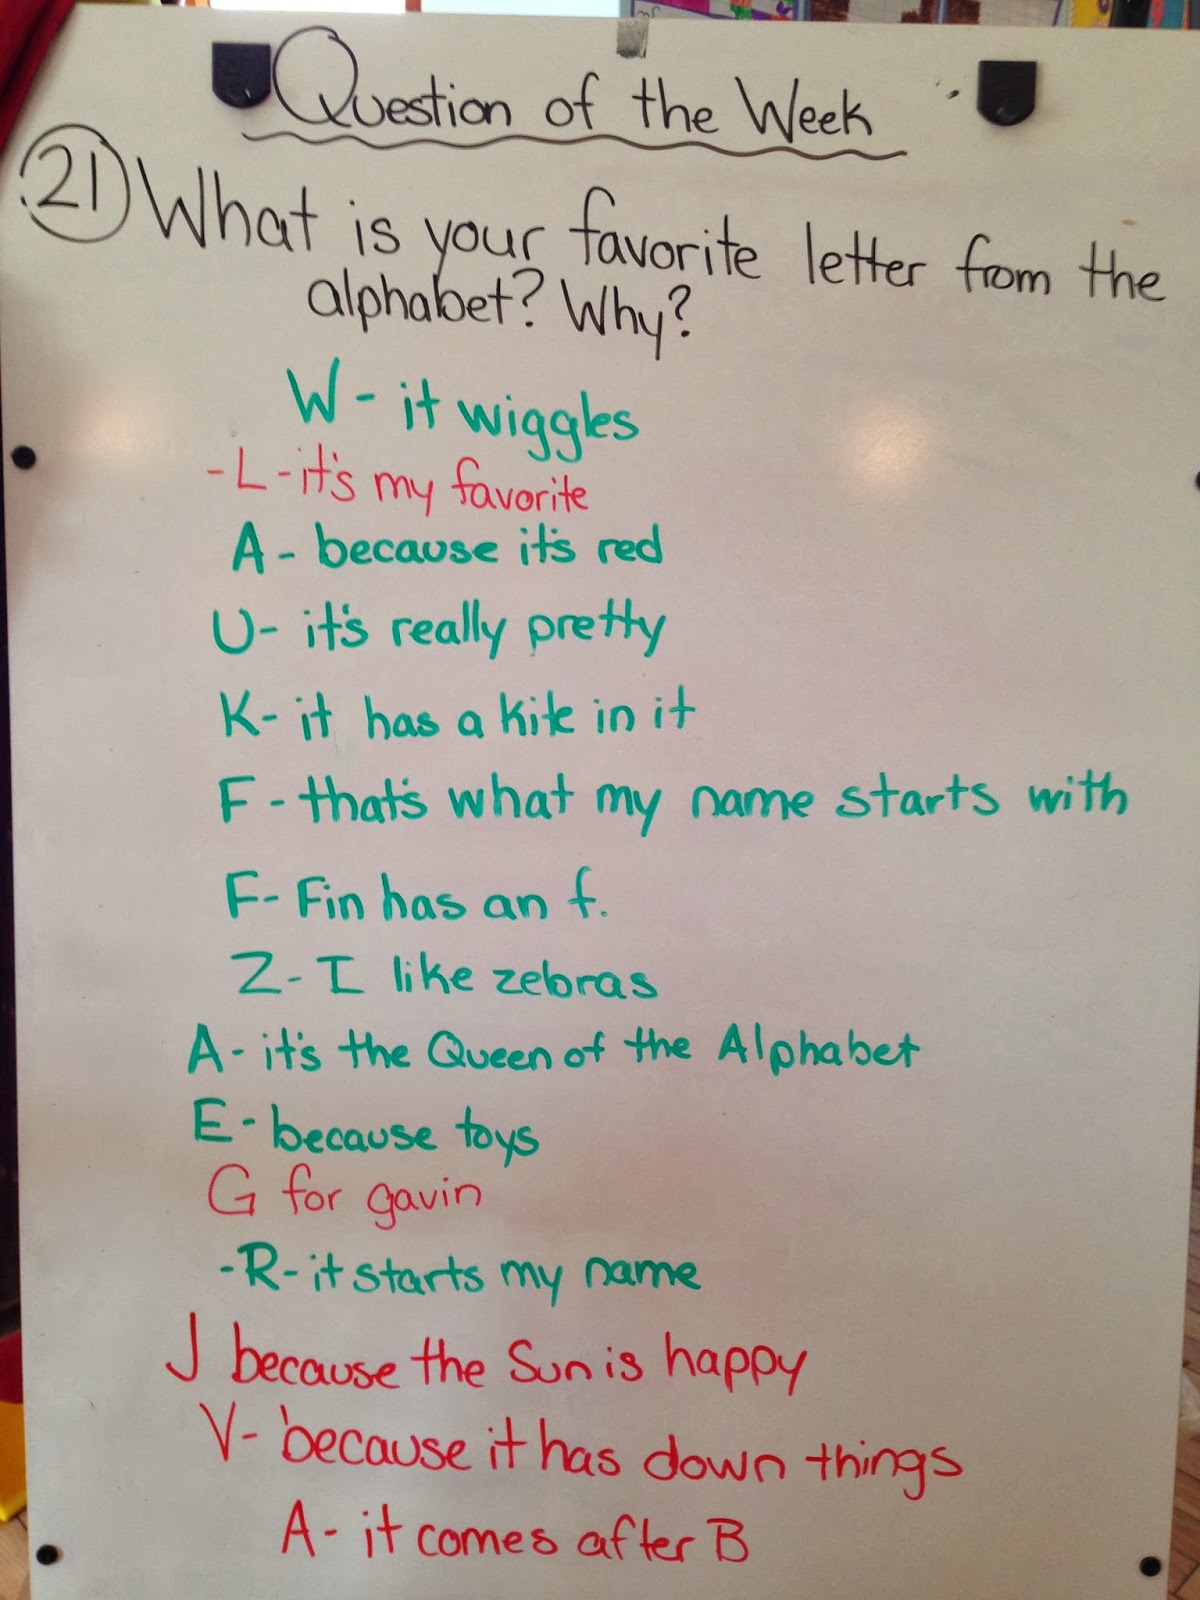 Question of the Week
21 What is your favorite letter from the
alphabet? Why?
W - it wiggles
- L - it's my favorite
A - because it's red
U - it's really pretty
K - it has a kite in it
F - that's what my name starts with
F - Fin has an f.
Z - I like zebras
A - it's the Queen of the Alphabet
E - because toys
G for gavin
- R - it starts my name
J because the Sun is happy
V - because it has down things
A - it comes after B